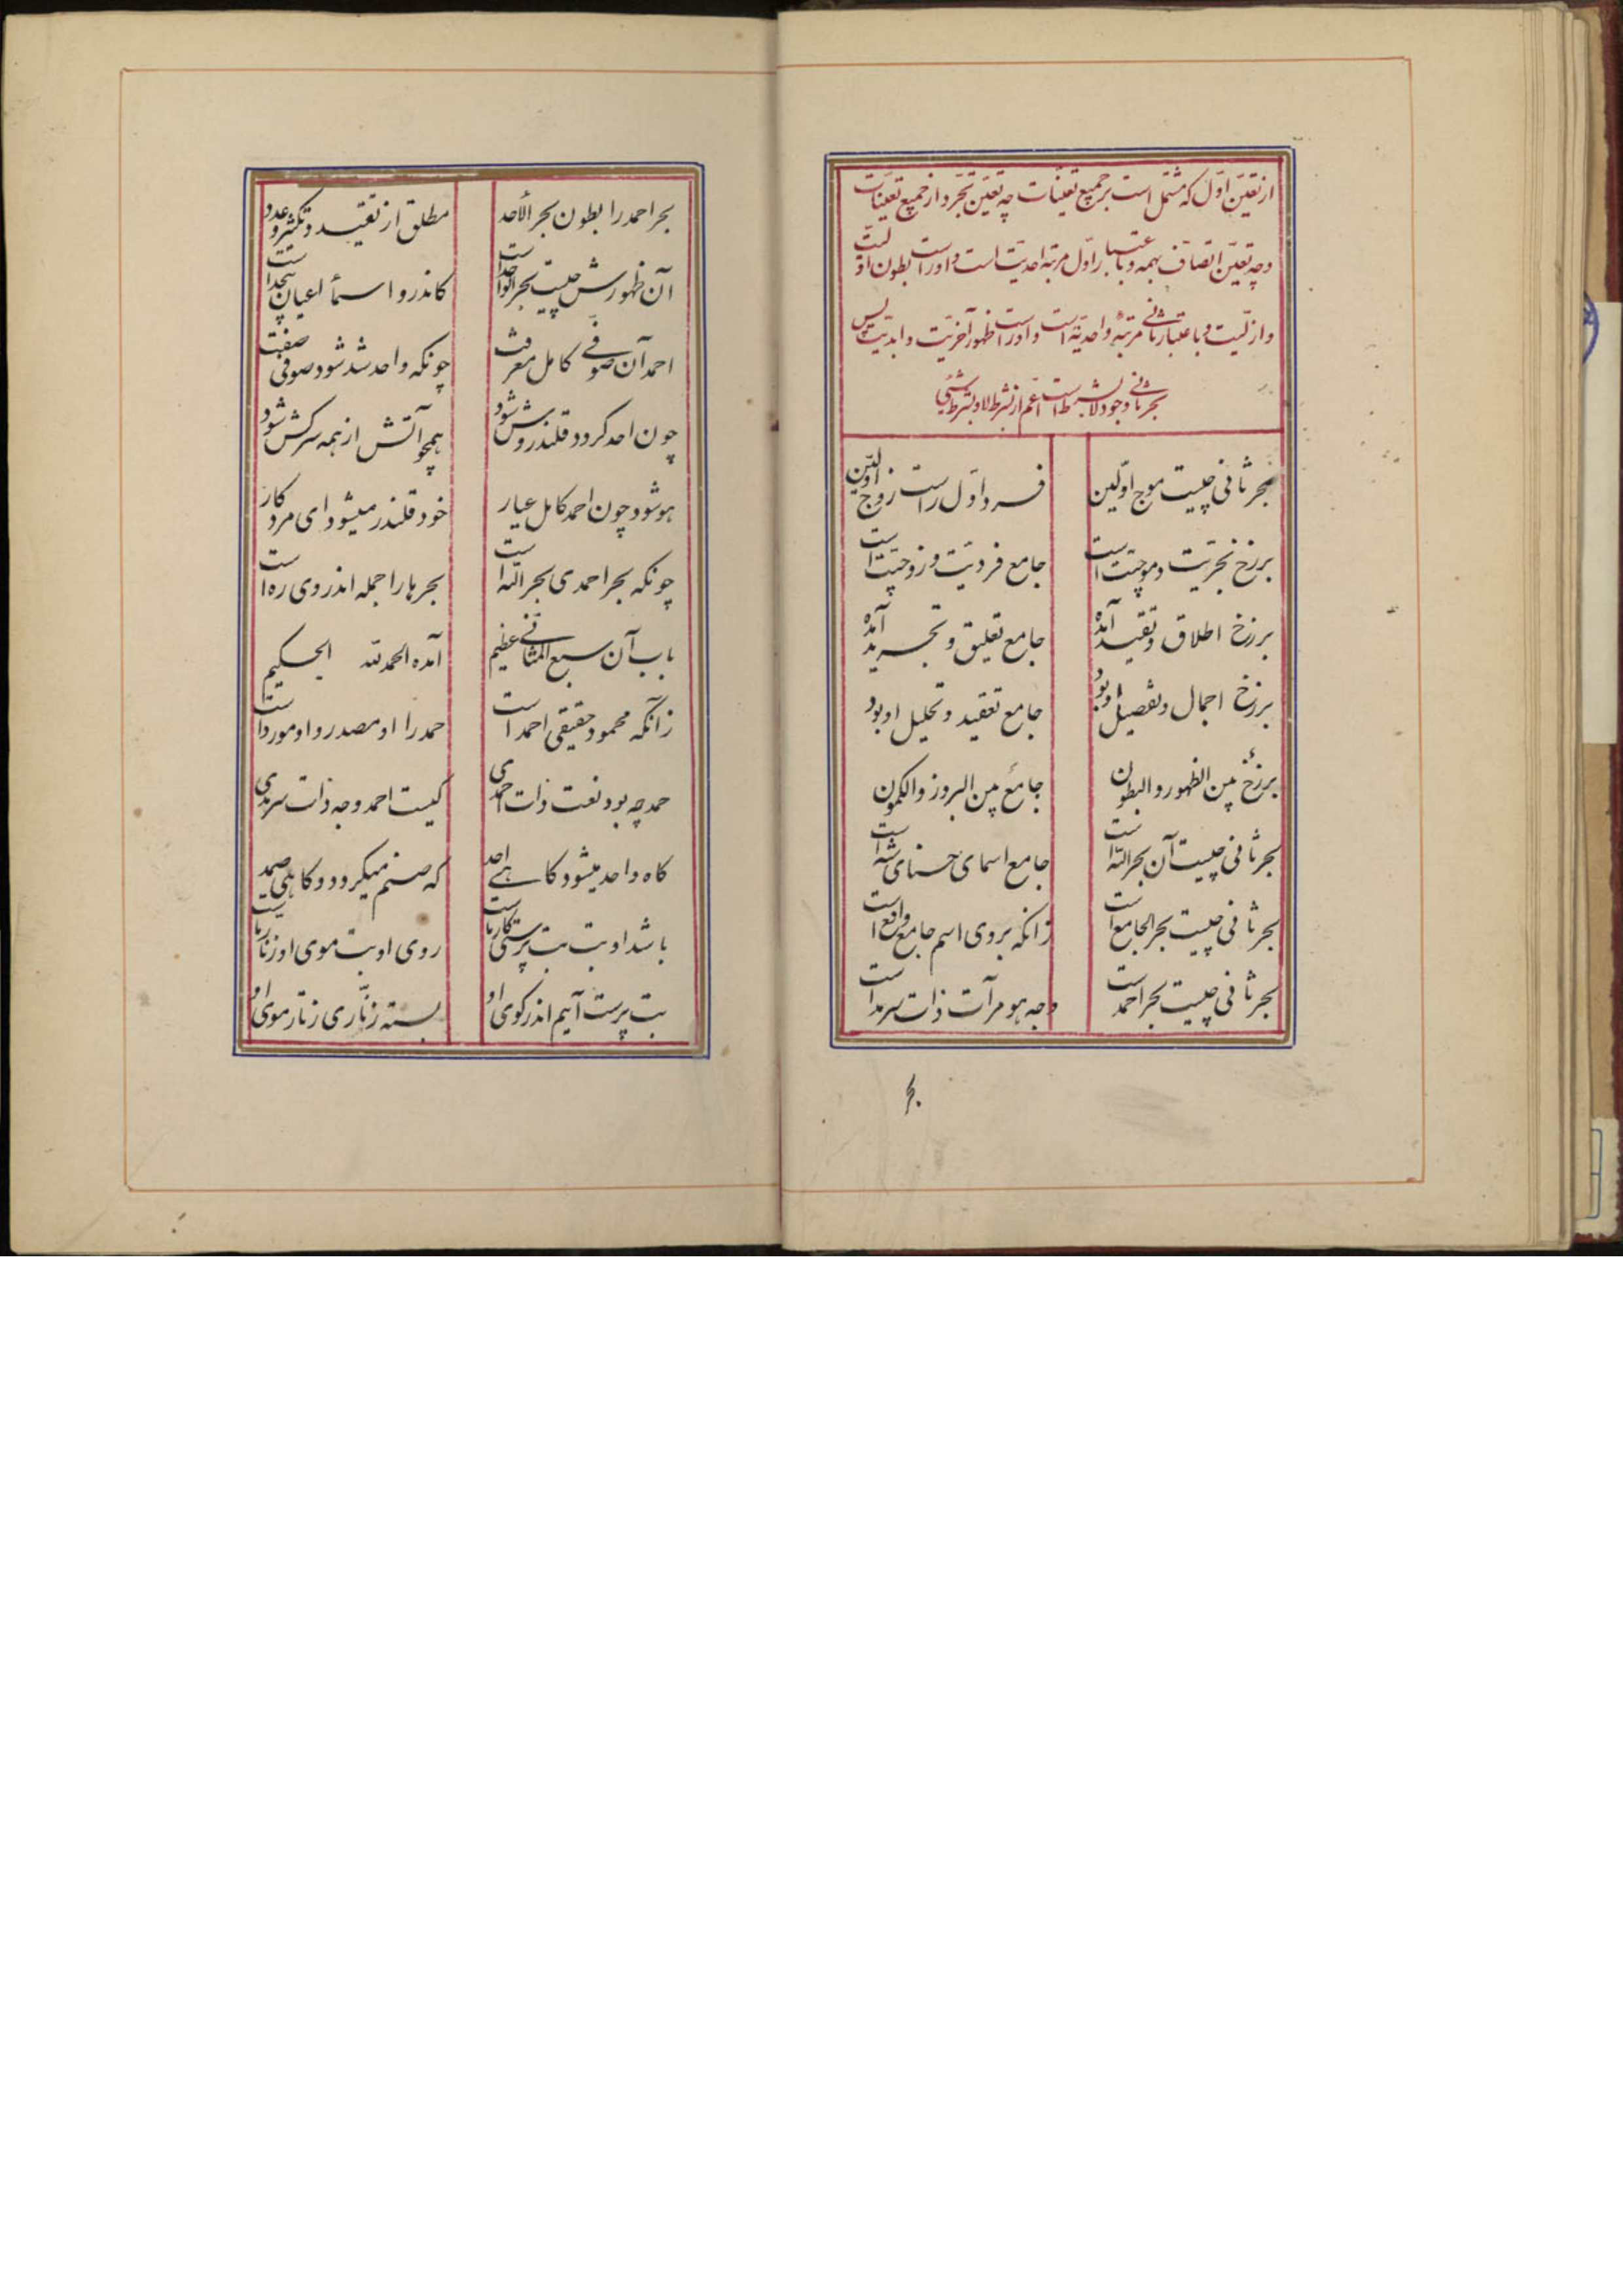 از تعیّن اوّل که مشتمل است بر جمیع تعیّنات چه تعیّن تجرّد از جمیع تعیّنات
وچه تعیّن اتّصاف بهمه و باعتبار اوّل مرتبه احدیّت است و اوراست بطون اوّلیّت
و ازلیّت و باعتبار ثانی مرتبهٔ واحدیّة است و اوراست ظهور آخریّت و ابدیّت پس
بحر ثانی وجود لابشرط است اعم از بشرط لا و بشرط شئی
بحر ثانی چیست موج اوّلین فرد اوّل راست زوج اوّلین
برزخ بحریّت و موجیّت است جامع فردیّت و زوجیّت است
برزخ اطلاق و تقیید آمده جامع تعلیق و تجرید آمده
برزخ اجمال و تفصیل او بود جامع تعقید و تحلیل او بود
برزخ بین الظهور و البطون جامع بین البروز والکمون
بحر ثانی چیست آن بحر اللّه است جامع اسمای حسنای شه است
بحر ثانی چیست بحر الجامع است زانکه بروی اسم جامع واقع است
بحر ثانی چیست بحر احمد است وجه هو مرآت ذات سرمد است
بحر
بحر احمد را بطون بحر الأحد مطلق از تقیید و تکثیر و عدد
آن ظهورش چیست بحر الواحد است کاندرو اسمأ اعیان بیحد است
احمد آن صوفی کامل معرفت چونکه واحد شد شود صوفی صفت
چون احد کردد قلندروش شود همچو آتش از همه سرکش شود
هو شود چون احمد کامل عیار خود قلندر میشود ای مرد کار
چونکه بحر احمدی بحر اللّه است بحرها را جمله اندر وی ره است
باب آن سبع المثانی عظیم آمده الحمد للّه الحکیم
زانکه محمود حقیقی احمد است حمد را او مصدر و او مورد است
حمد چه بود نعت ذات احمدی کیست احمد وجه ذات سرمدی
کاه واحد میشود کاهی احد که صنم میکردد و کاهی صمد
باشد او بت بت پرستی کار ماست روی او بت موی او زنار ماست
بت پرست آئیم اندر کوی او بسته زنّاری ز تار موی او